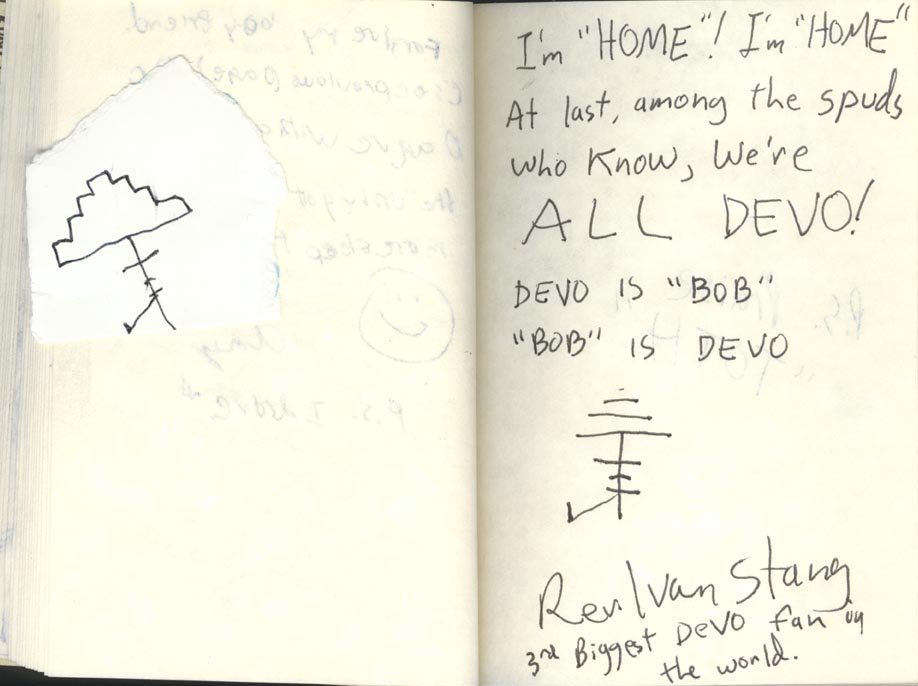 I'm "HOME"! I'm "HOME"
At last, among the spuds
who know, We're
ALL DEVO!
DEVO IS "BOB"
"BOB" IS DEVO
Rev Ivan Stang
3rd Biggest DEVO fan in
the world.